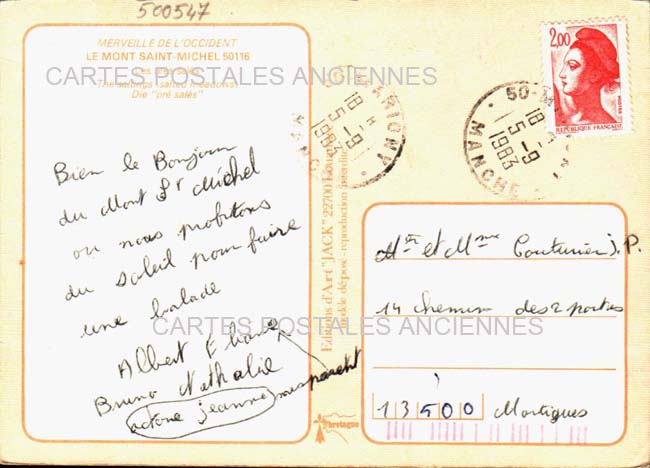 500547
MERVEILLE DE L'OCCIDENT
LE MONT SAINT-MICHEL 50116
Les prés salés
The saltings (salted meadows)
Die "pré salés"
CARTES POSTALES ANCIENNES
Bien le Bonjour
du Mont St Michel
ou nous profitons
du soleil pour faire
une balade
Albert Eliane
Bruno Nathalie
jeanne mes parent
Editions d'Art "JACK" 22700
modèle déposé - reproduction interdite
bretagne
18 H
5-9
1983
MANCHE
50-M
18 H
5-9
1983
MANCHE
2,00
POSTES
REPUBLIQUE FRANÇAISE
Mr et Mme Couturier J.P.
14 chemin des 2 portes
13500 Martigues
CARTES POSTALES ANCIENNES